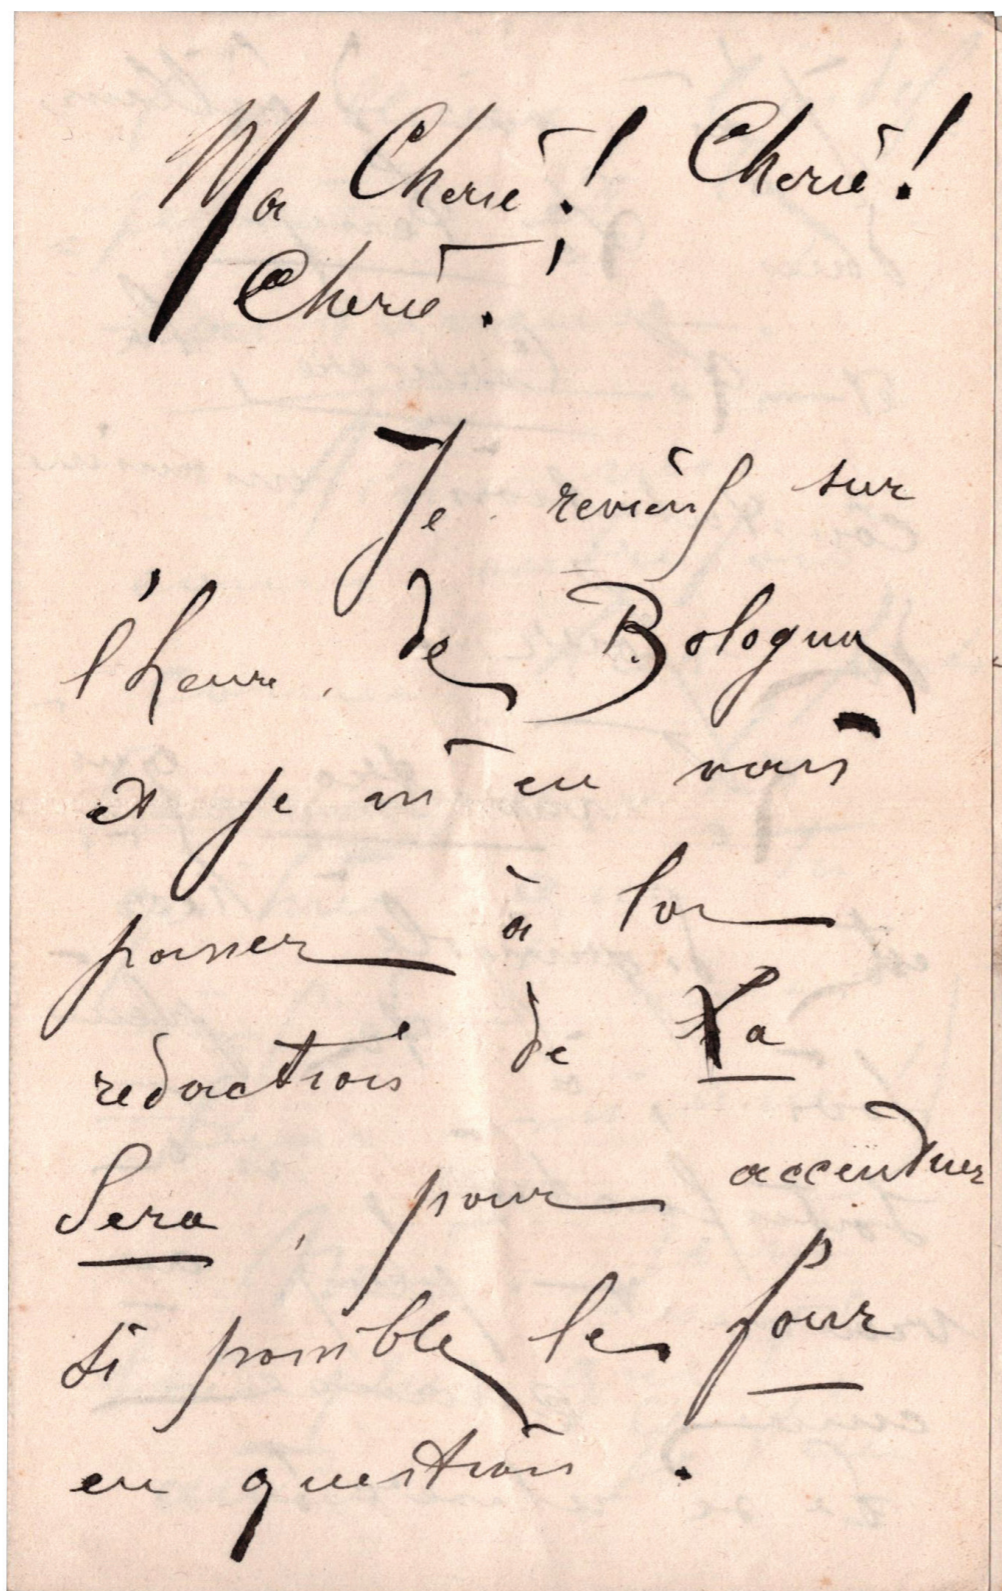 Ma Cherie! Cherie!
Cherie!
Je reviens sur
l'heure de Bologna
et je m'en vais
passer à la
redaction de La
Sera, pour accentuer
si possible le four
en question.